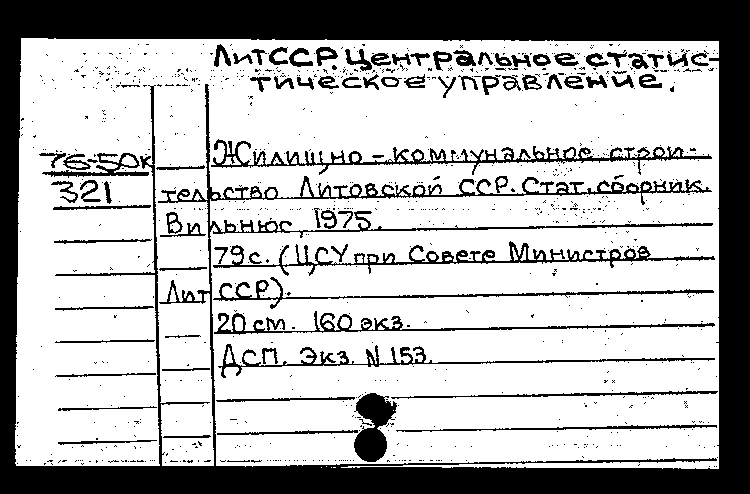 ЛитССР. Центральное статис-
тическое управление.
76-50к
321
Жилищно-коммунальное строи-
тельство Литовской ССР. Стат. сборник.
Вильнюс, 1975.
79 с. (ЦСУ при Совете Министров
Лит ССР).
20 см. 160 экз.
ДСП. Экз. N 153.